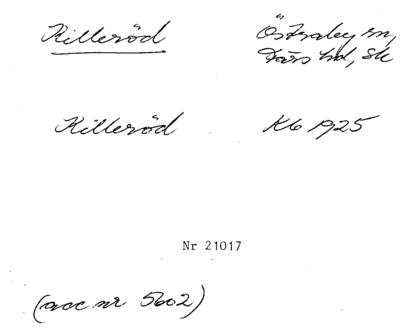 Killeröd Östraby sn,
Färs hd, Sk
Killeröd Kb 1925
Nr 21017
(acc nr 5602)